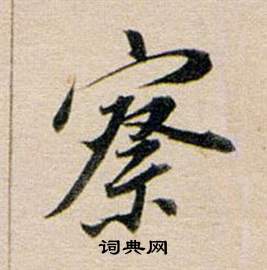 察
词典网